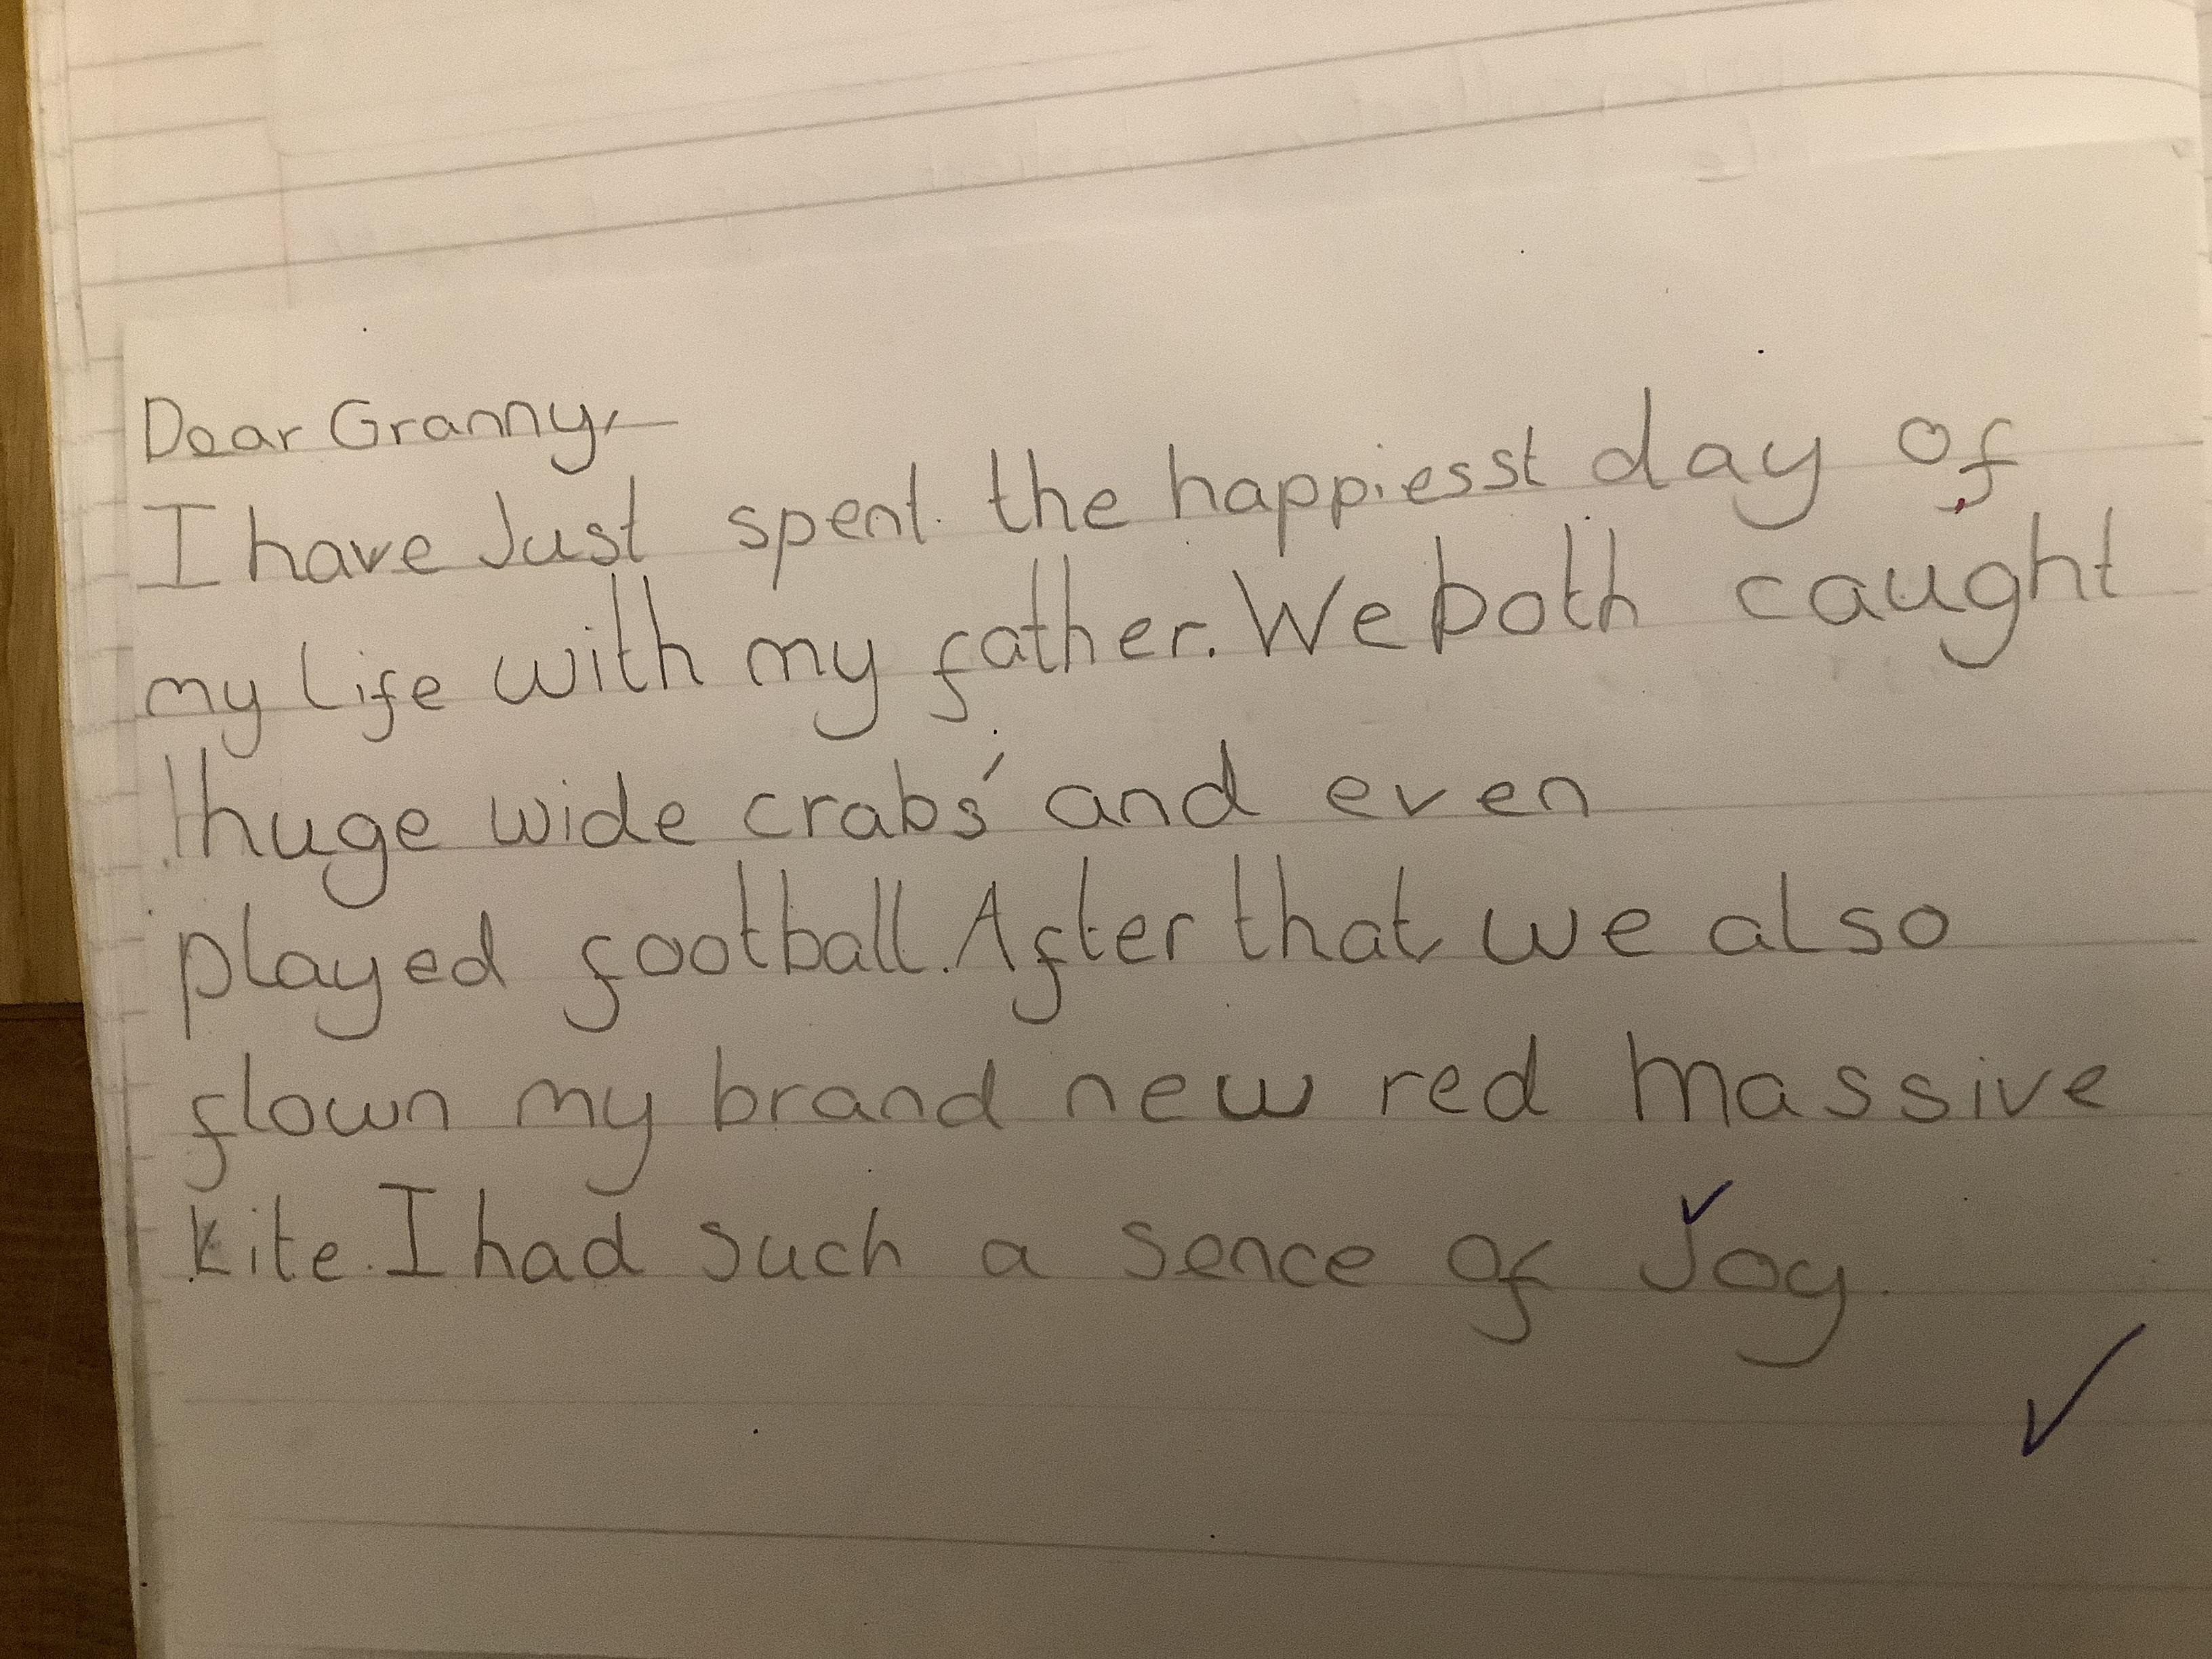 Dear Granny,
I have Just spent the happiesst day of
my life with my father. We both caught
huge wide crabs' and even
played football. After that we also
flown my brand new red massive
kite. I had such a sence of Joy.